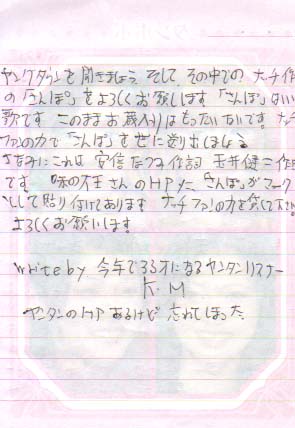 ヤングタウンを聞きましょう そして、その中での ナッチ作
の「さんぽ」をよろしくお願いします「さんぽ」はいい
歌です このままお蔵入りはもったいないです。ナッ
チファンの力で「さんぽ」を世に送り出しましょう
ちなみにこれは 安倍なつみ作詞 玉井健二作曲
です。味の王さんのHPに「さんぽ」が
して貼り付けてあります ナッチファンの力を貸して下さい
よろしくお願いします。
write by 今年で33才になるヤンタンリスナー
K・M
ヤンタンのHPあるけど 忘れてしまった